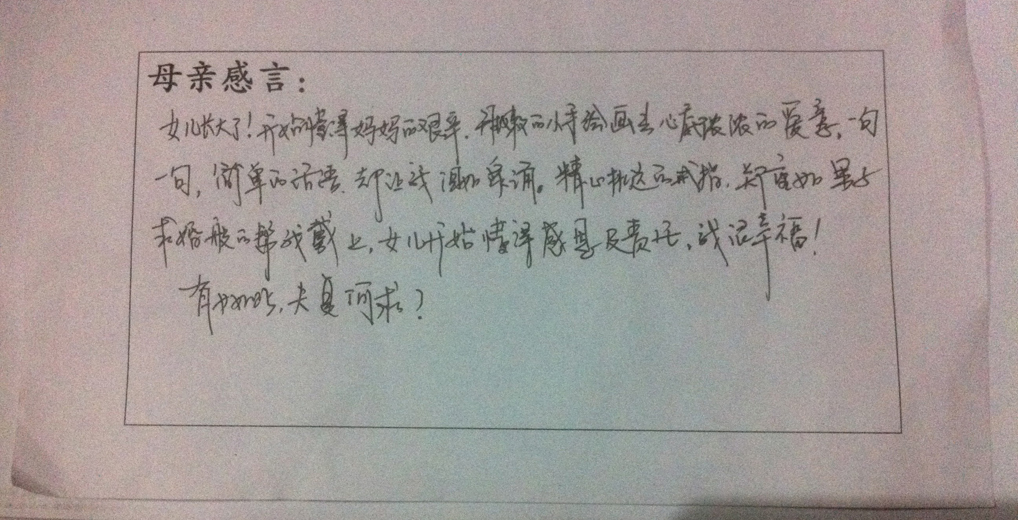 母亲感言：
女儿长大了！开始懂得妈妈的艰辛，稚嫩的小手绘画出心底浓浓的爱意，一句
一句，简单的话语，却让我泪如泉涌。精心挑选的戒指，郑重如
求婚般的帮我戴上，女儿开始懂得感恩及责任，我很幸福！
有女如此，夫复何求？